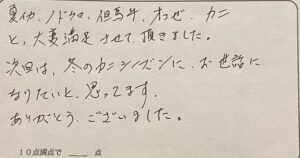 夏イカ、ノドクロ、但馬牛、オコゼ、カニ
と、大変満足させて頂きました。
次回は、冬のカニシーズンに、お世話に
なりたいと、思ってます。
ありがとうございました。
10点満点で ___ 点